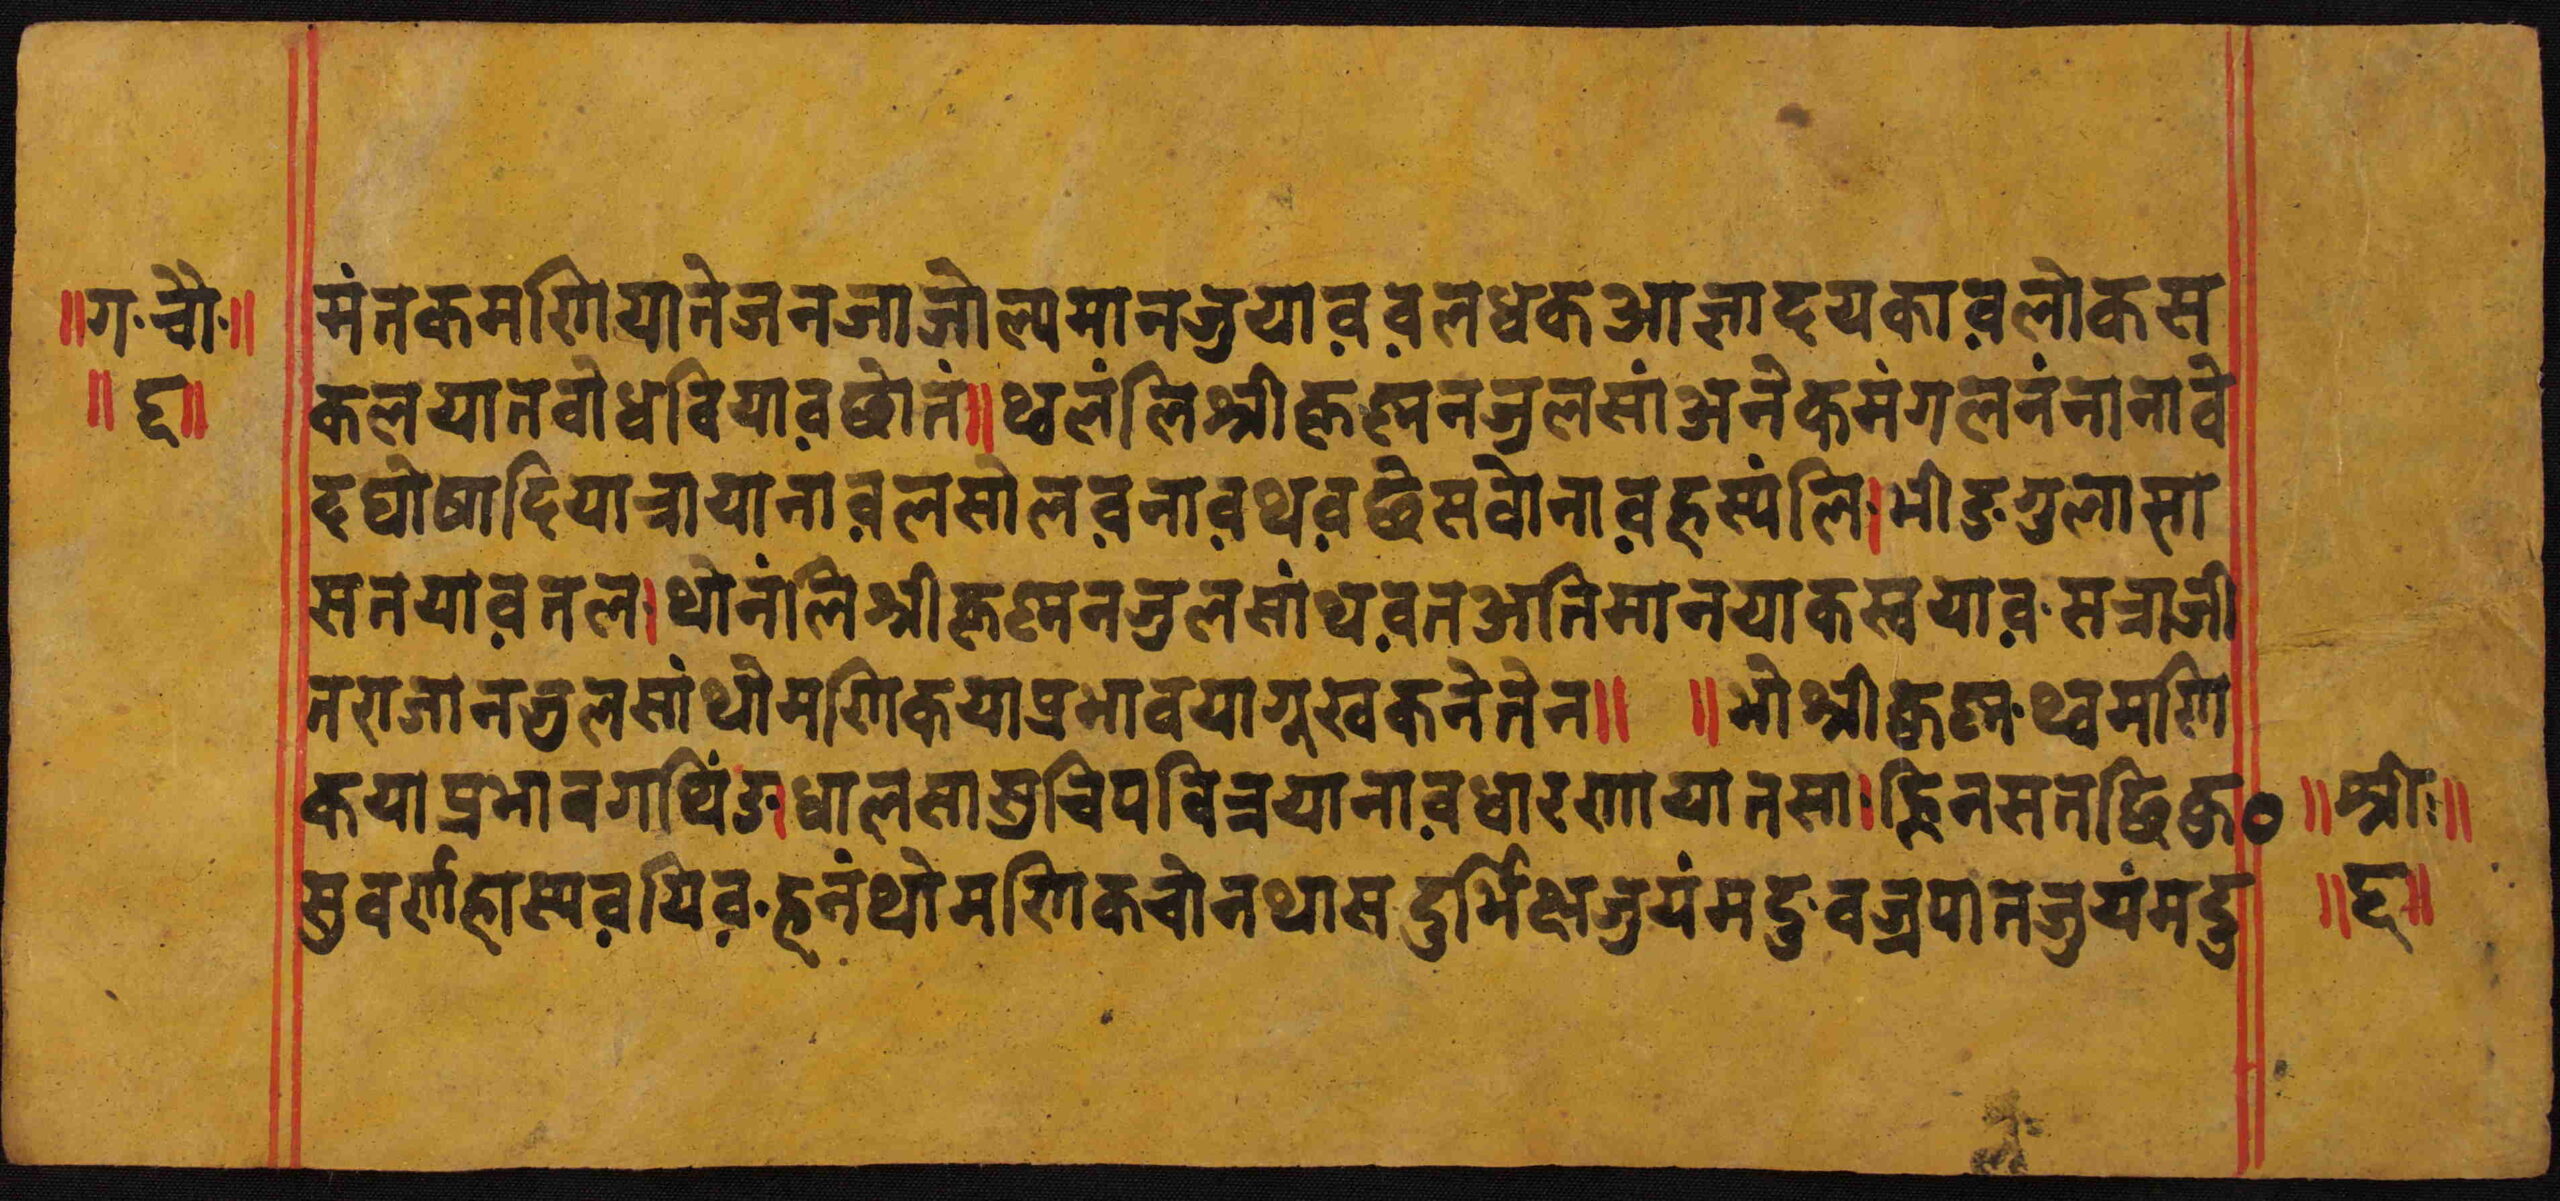 ॥ग॰चौ॰॥
॥ ६॥
मंतकमणियातेजनजाजोल्यमानजुयाव़व़लध्वकआज्ञादयकाव़लोकस
कलयातवोधवियाव़छोतं॥थ्वलंलिश्रीकृष्णनजुलसांअनेकमंगलनंनानावे
दघोषादियात्रायानाव़लसोलव़नाव़थव़छेसवोनाव़हस्यंलि।भीङगुलासा
सतयाव़तल।थोनंलिश्रीकृष्णनजुलसांथव़तअतिमानयाकस्वयाव़॰सत्राजी
तराजानजुलसांथोमणिकयाप्रभावयागुखकनेतेन॥ ॥भोश्रीकृष्ण॰थ्वमणि
कयाप्रभावगथिंङ।धालसाशुचिपवित्रयानाव़धारणायातसा।ह्निनसतछिकु०
सुवर्णहास्यव़यिव़॰ह्ननंथोमणिकचोनथासदुर्भिक्षजुयंमदु॰वज्रपातजुयंमदु
॥श्रीः॥
॥६॥